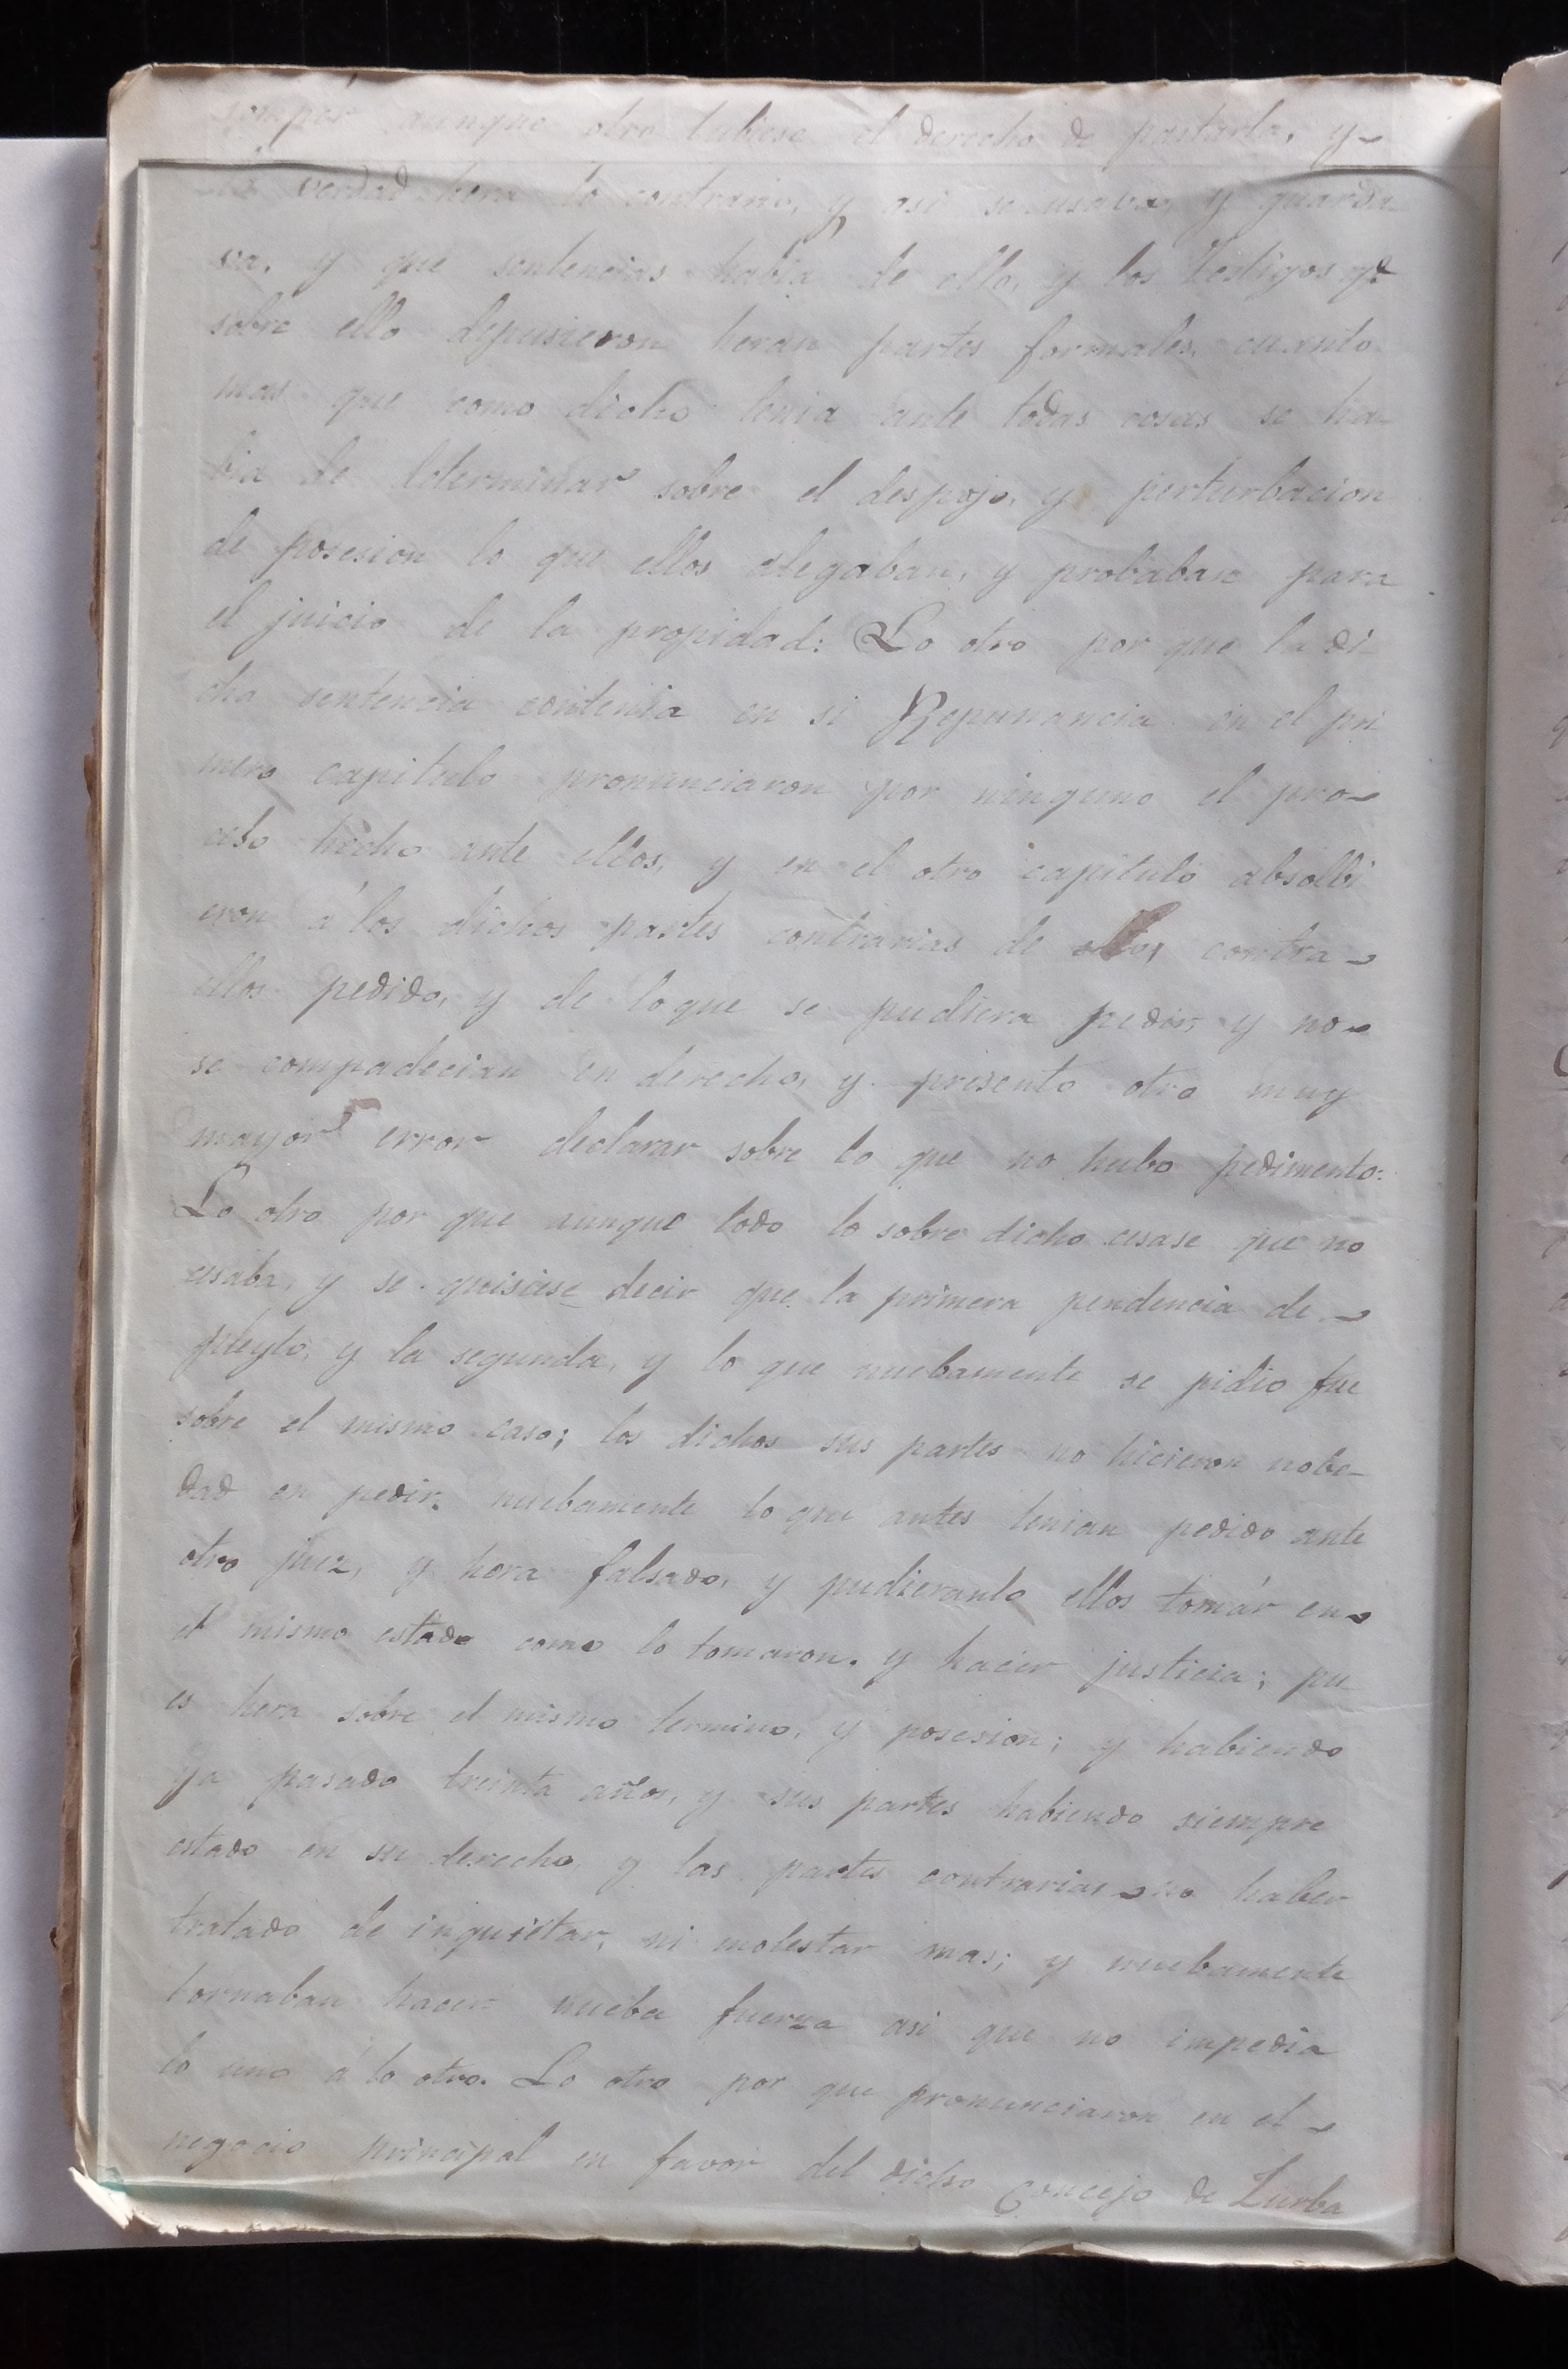 romper aunque otro tubiese el derecho de pastarla, y
la verdad hera lo contrario, y asi se usava, y guarda
va, y que sentencias habia de ello, y los Testigos qe
sobre ello depusieron heran partes formales, cuanto
mas que como dicho tenia ante todas cosas se ha-
bia de determinar sobre el despojo, y perturbacion
de posesion lo que ellos alegaban, y probaban para
el juicio de la propidad: Lo otro por que la di-
cha sentencia contenia en si Repunancia en el pri
mero capitulo pronunciaron por ninguno el pro-
ceso hecho ante ellos, y en el otro capitulo absolbi
eron á los dichos partes contrarias de contra
ellos pedido, y de loque se pudiera pedir, y no
se compadecian en derecho, y presento otro muy
mayor error declarar sobre lo que no hubo pedimento:
Lo otro por que aunque todo lo sobre dicho cesase que no
cesaba, y se quisiese decir que la primera pendencia de
pleyto, y la segunda, y lo que nuebamente se pidio fue
sobre el mismo caso; los dichos sus partes no hicieron nobe-
dad en pedir nuebamente lo que antes tenian pedido ante
otro juez, y hera falsado, y pudieranlo ellos tomár en
el mismo estado como lo tomaron. y hacer justicia; pu
es hera sobre el mismo termino, y posesion; y habiendo
ya pasado treinta años, y sus partes habiendo siempre
estado en su derecho, y las partes contrarias no haber
tratado de inquietar, ni molestar mas; y nuebamente
tornaban hacer nueba fuerza asi que no impedia
lo uno á lo otro. Lo otro por que pronunciaron en el
negocio principal en favor del dicho Concejo de Zurba